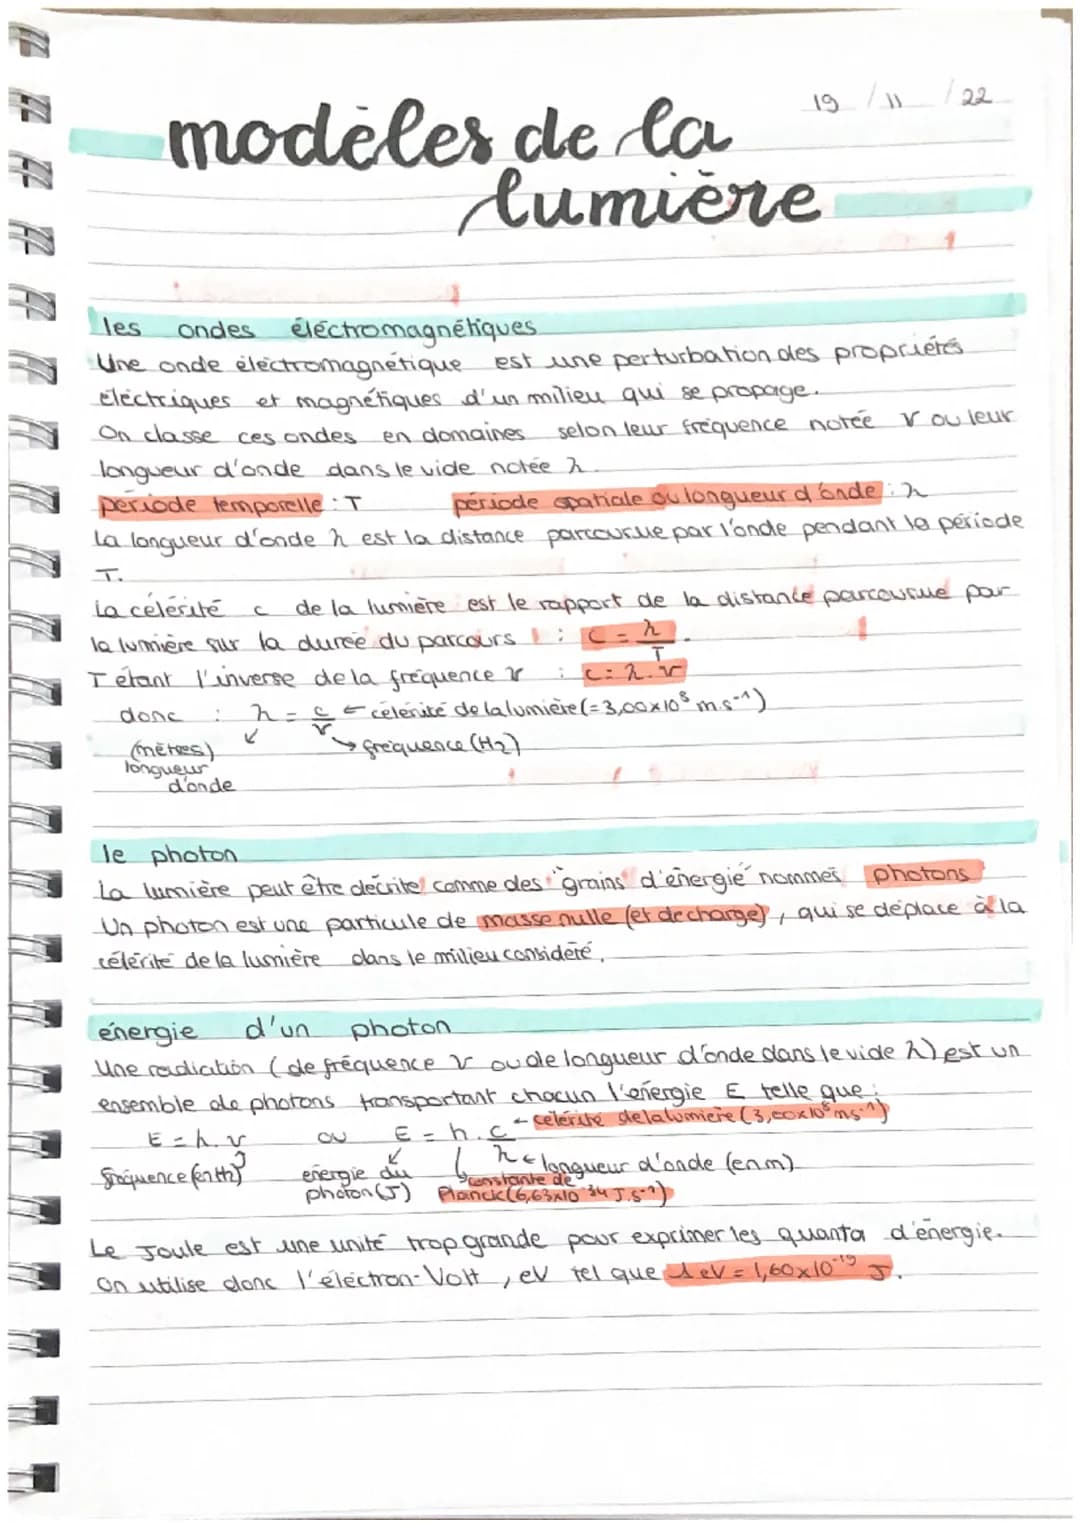 19 / 11 / 22
modèles de la
lumière
les ondes éléctromagnétiques
Une onde éléctromagnétique est une perturbation des propriétés
éléctriques et magnétiques d'un milieu qui se propage.
On classe ces ondes en domaines selon leur fréquence notée ν ou leur
longueur d'onde dans le vide notée λ.
période temporelle : T période spatiale ou longueur d'onde : λ
La longueur d'onde λ est la distance parcourue par l'onde pendant la période
T.
La célérité c de la lumière est le rapport de la distance parcourue par
la lumière sur la durée du parcours : c = λ/T.
T étant l'inverse de la fréquence ν : c = λ.ν
donc : λ = c/ν ← célérité de la lumière (= 3,00×10⁸ m.s⁻¹)
(mètres) → fréquence (Hz)
longueur
d'onde
le photon
La lumière peut être décrite comme des "grains" d'énergie nommés photons
Un photon est une particule de masse nulle (et de charge), qui se déplace à la
célérité de la lumière dans le milieu considéré.
énergie d'un photon
Une radiation (de fréquence ν ou de longueur d'onde dans le vide λ) est un
ensemble de photons transportant chacun l'énergie E telle que :
E = h.ν ou E = h.c/λ ← célérité de la lumière (3,00×10⁸ m.s⁻¹)
fréquence (en Hz) énergie du photon (J) constante de Planck (6,63×10⁻³⁴ J.s⁻¹) ← longueur d'onde (en m)
Le Joule est une unité trop grande pour exprimer les quanta d'énergie.
On utilise donc l'éléctron-Volt, eV tel que 1 eV = 1,60×10⁻¹⁹ J.